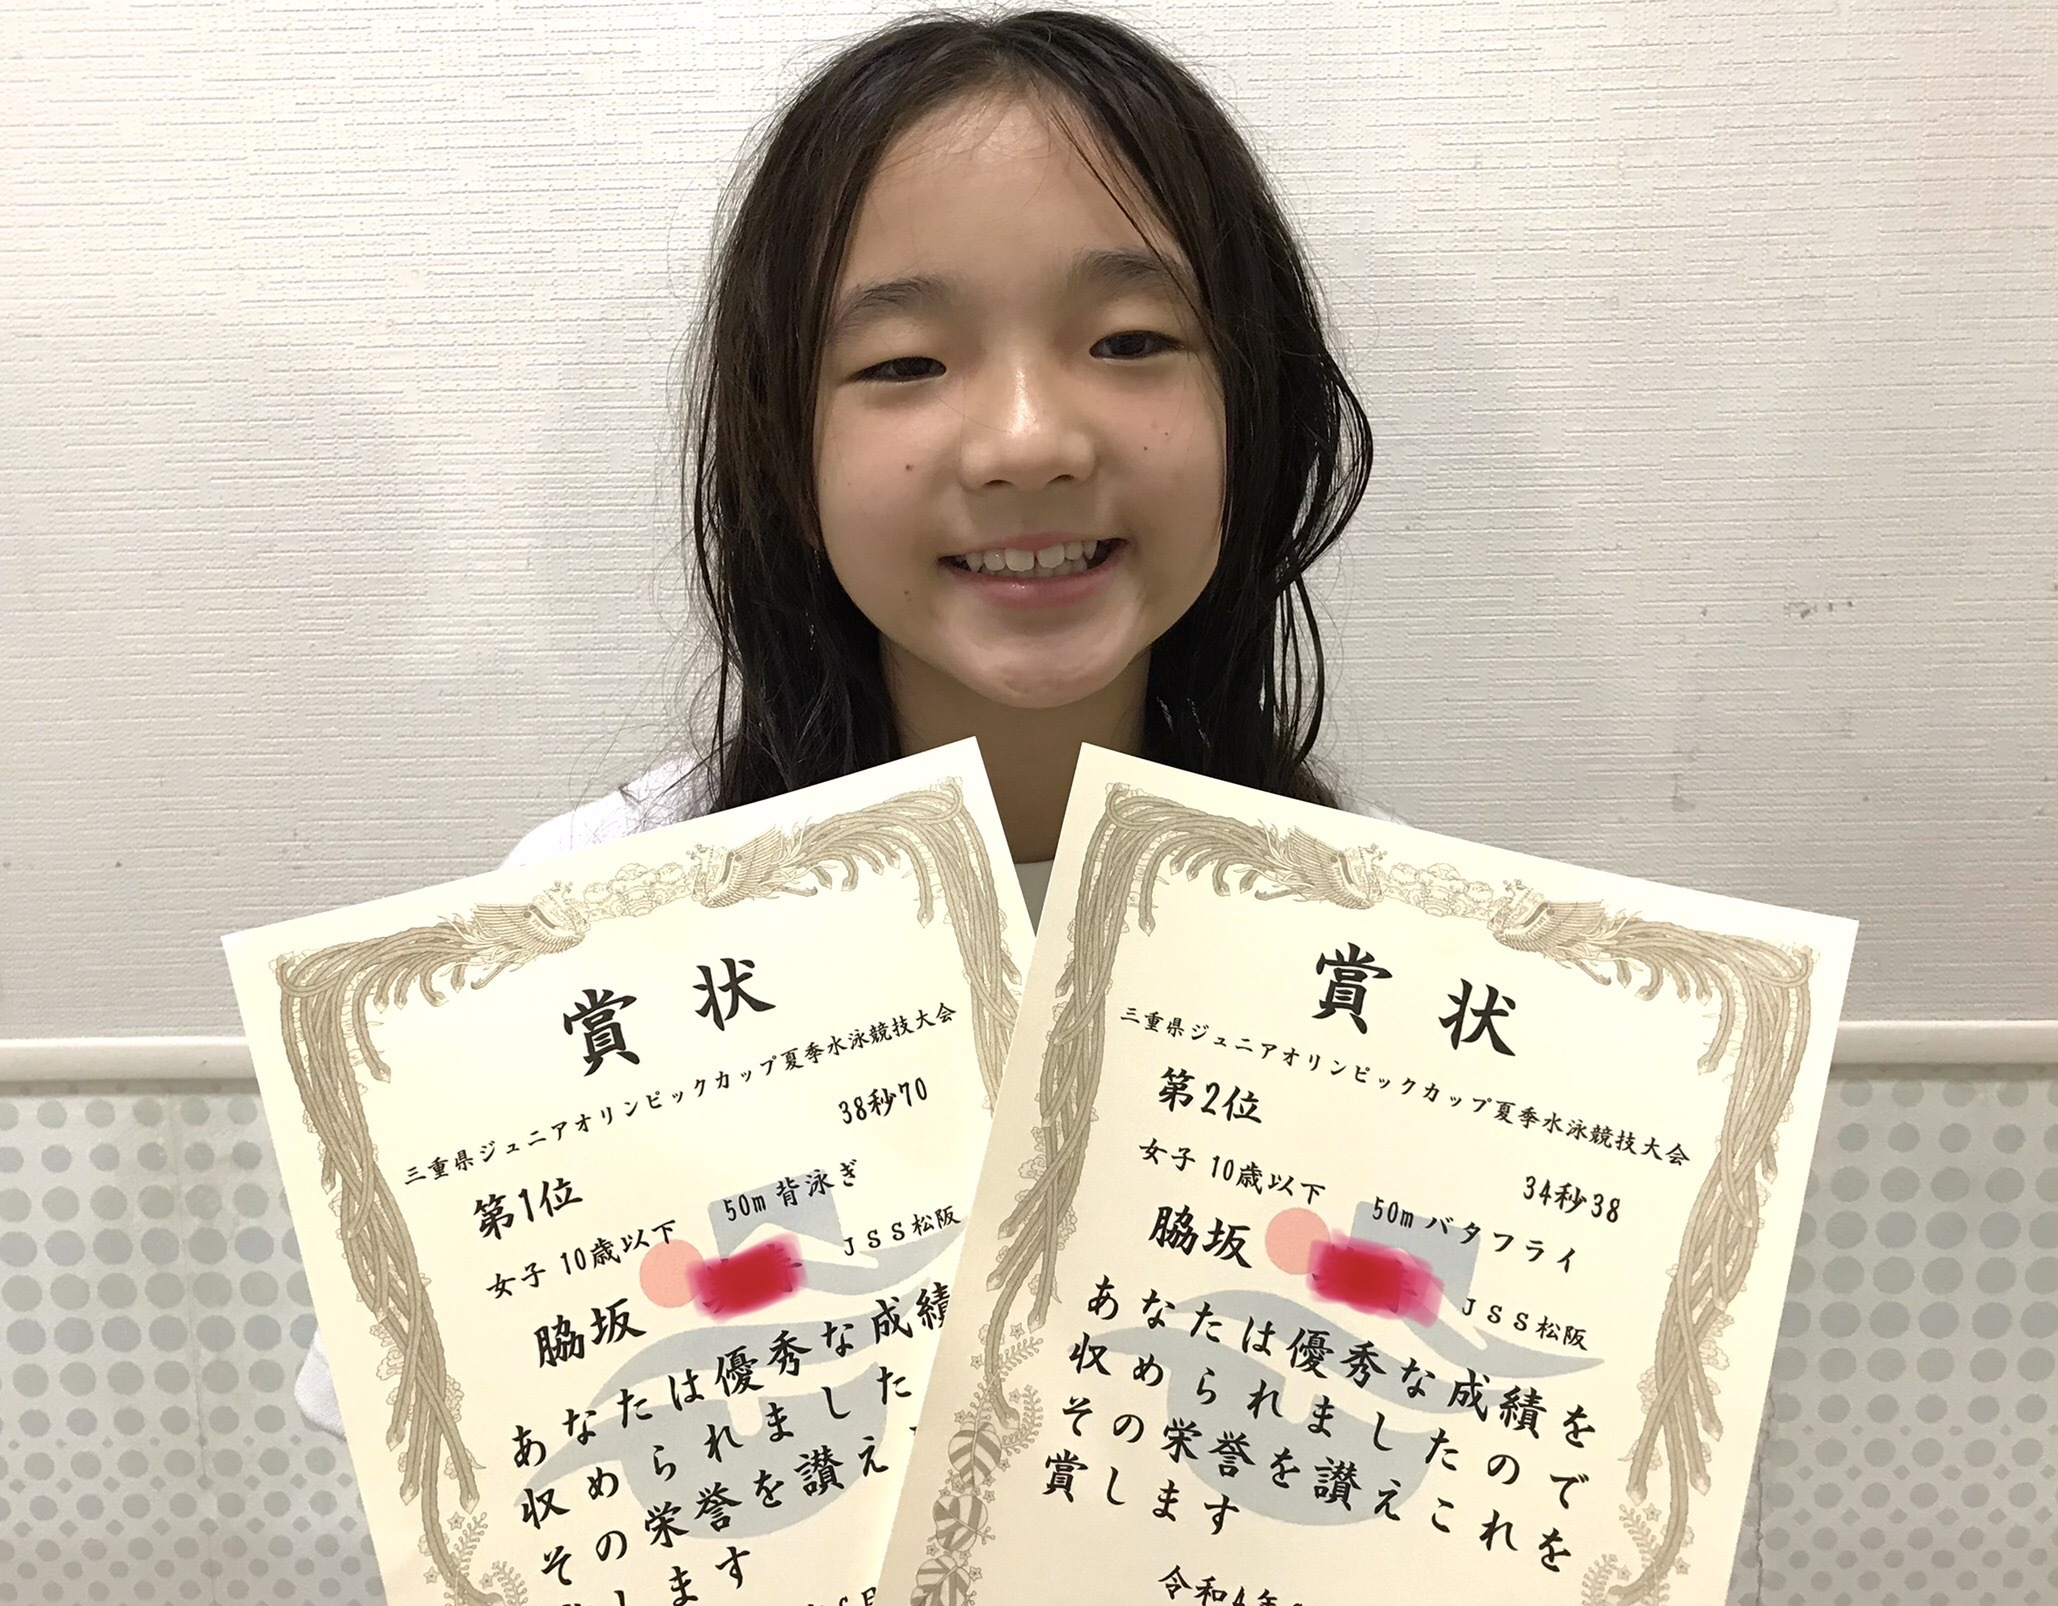 賞状
三重県ジュニアオリンピックカップ夏季水泳競技大会
第1位
38秒70
女子 10歳以下
50m 背泳ぎ
脇坂
JSS松阪
あなたは優秀な成績
収められました
その栄誉を讃え
します
賞状
三重県ジュニアオリンピックカップ夏季水泳競技大会
第2位
34秒38
女子 10歳以下
50m バタフライ
脇坂
JSS松阪
あなたは優秀な成績を
収められましたので
その栄誉を讃えこれを
賞します
令和4年